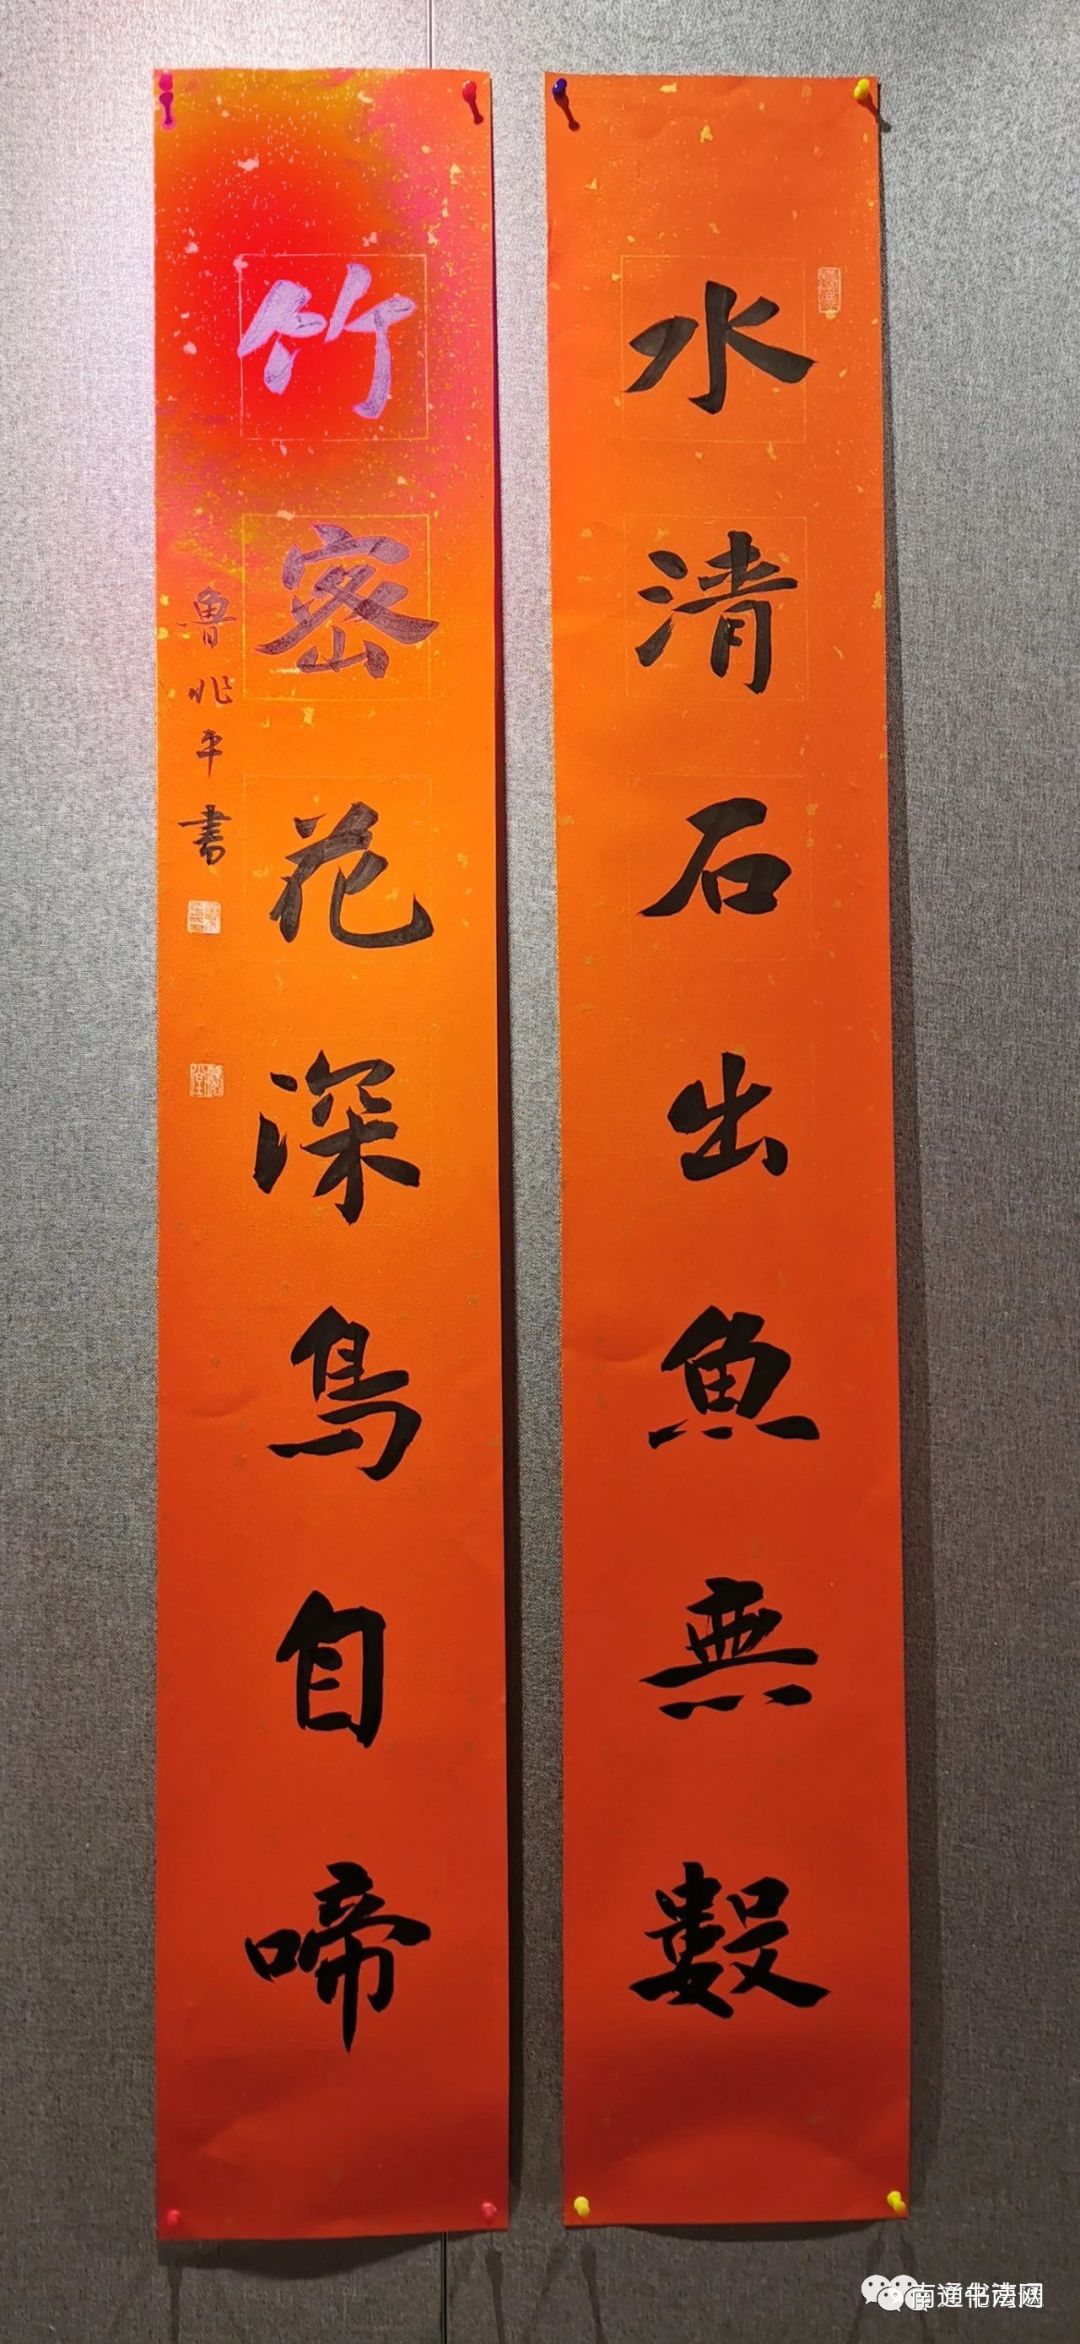 水清石出魚無數
竹密花深鳥自啼
魯兆平書
南通书法网